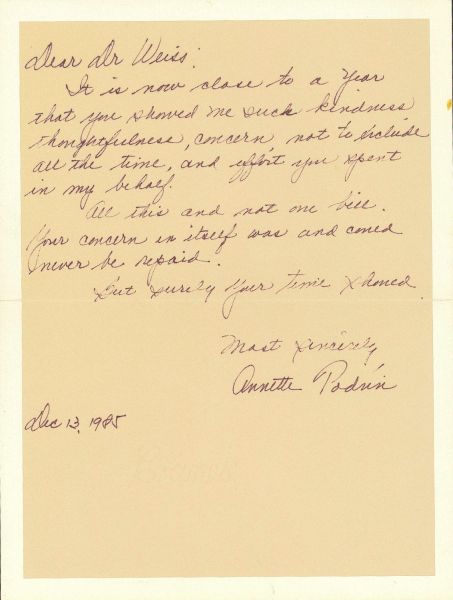 Dear Dr Weiss:
It is now close to a year
that you showed me such kindness
thoughtfulness, concern, not to include
all the time, and effort you spent
in my behalf.
All this and not one bill.
Your concern in itself was and coued
never be repaid.
But surely your time shoued.
Most sincerely
Annette Podvin
Dec 13, 1985